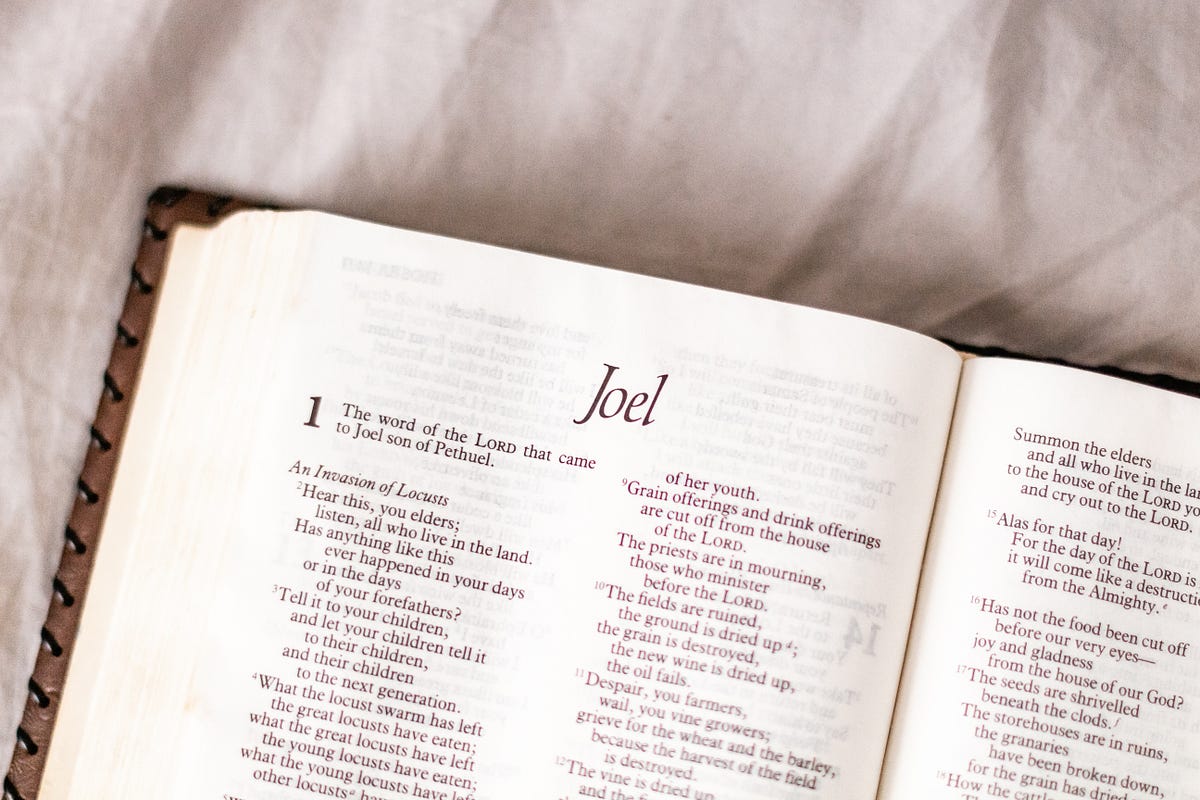 Joel
1 The word of the LORD that came
to Joel son of Pethuel.
An Invasion of Locusts
2Hear this, you elders;
listen, all who live in the land.
Has anything like this
ever happened in your days
or in the days
of your forefathers?
3Tell it to your children,
and let your children tell it
to their children,
and their children
to the next generation.
4What the locust swarm has left
the great locusts have eaten;
what the great locusts have left
the young locusts have eaten;
what the young locusts have left
other locustsa
of her youth.
9Grain offerings and drink offerings
are cut off from the house
of the LORD.
The priests are in mourning,
those who minister
before the LORD.
10The fields are ruined,
the ground is dried up;
the grain is destroyed,
the new wine is dried up,
the oil fails.
11Despair, you farmers,
wail, you vine growers;
grieve for the wheat and the barley,
because the harvest of the field
is destroyed.
12The vine is dried up
and the
Summon the elders
and all who live in the
to the house of the LORD
and cry out to the LORD.
15Alas for that day!
For the day of the LORD is
it will come like a
from the Almighty.e
16Has not the food been cut off
before our very eyes—
joy and gladness
from the house of our God?
17The seeds are shrivelled
beneath the clods.f
The storehouses are in ruins,
the granaries
have been broken down,
for the grain has dried
18How the